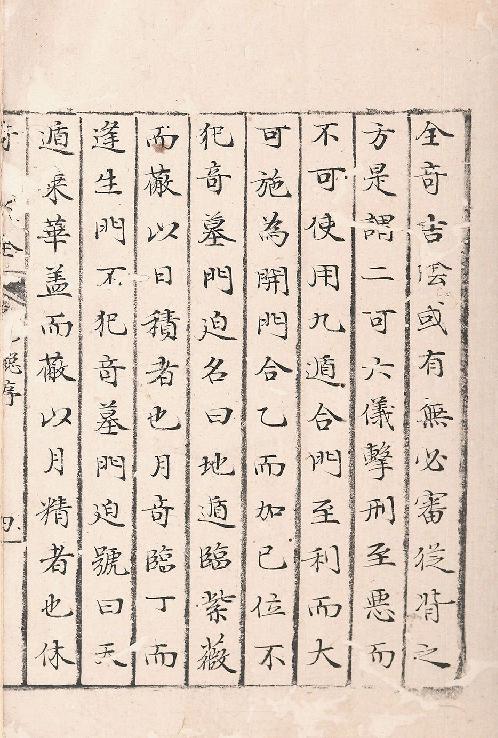 全奇吉隂或有無必審從背之
方是謂二可六儀擊刑至悪而
不可使用九遁合門至利而大
可施為開門合乙而加已位不
犯奇墓門迫名曰地遁臨紫薇
而蔽以日積者也月奇臨丁而
逢生門不犯奇墓門迫號曰天
遁来華盖而蔽以月精者也休